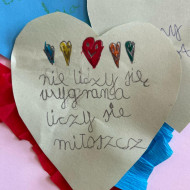 nie liczy się
wygrana
liczy się
miłoszcz
y